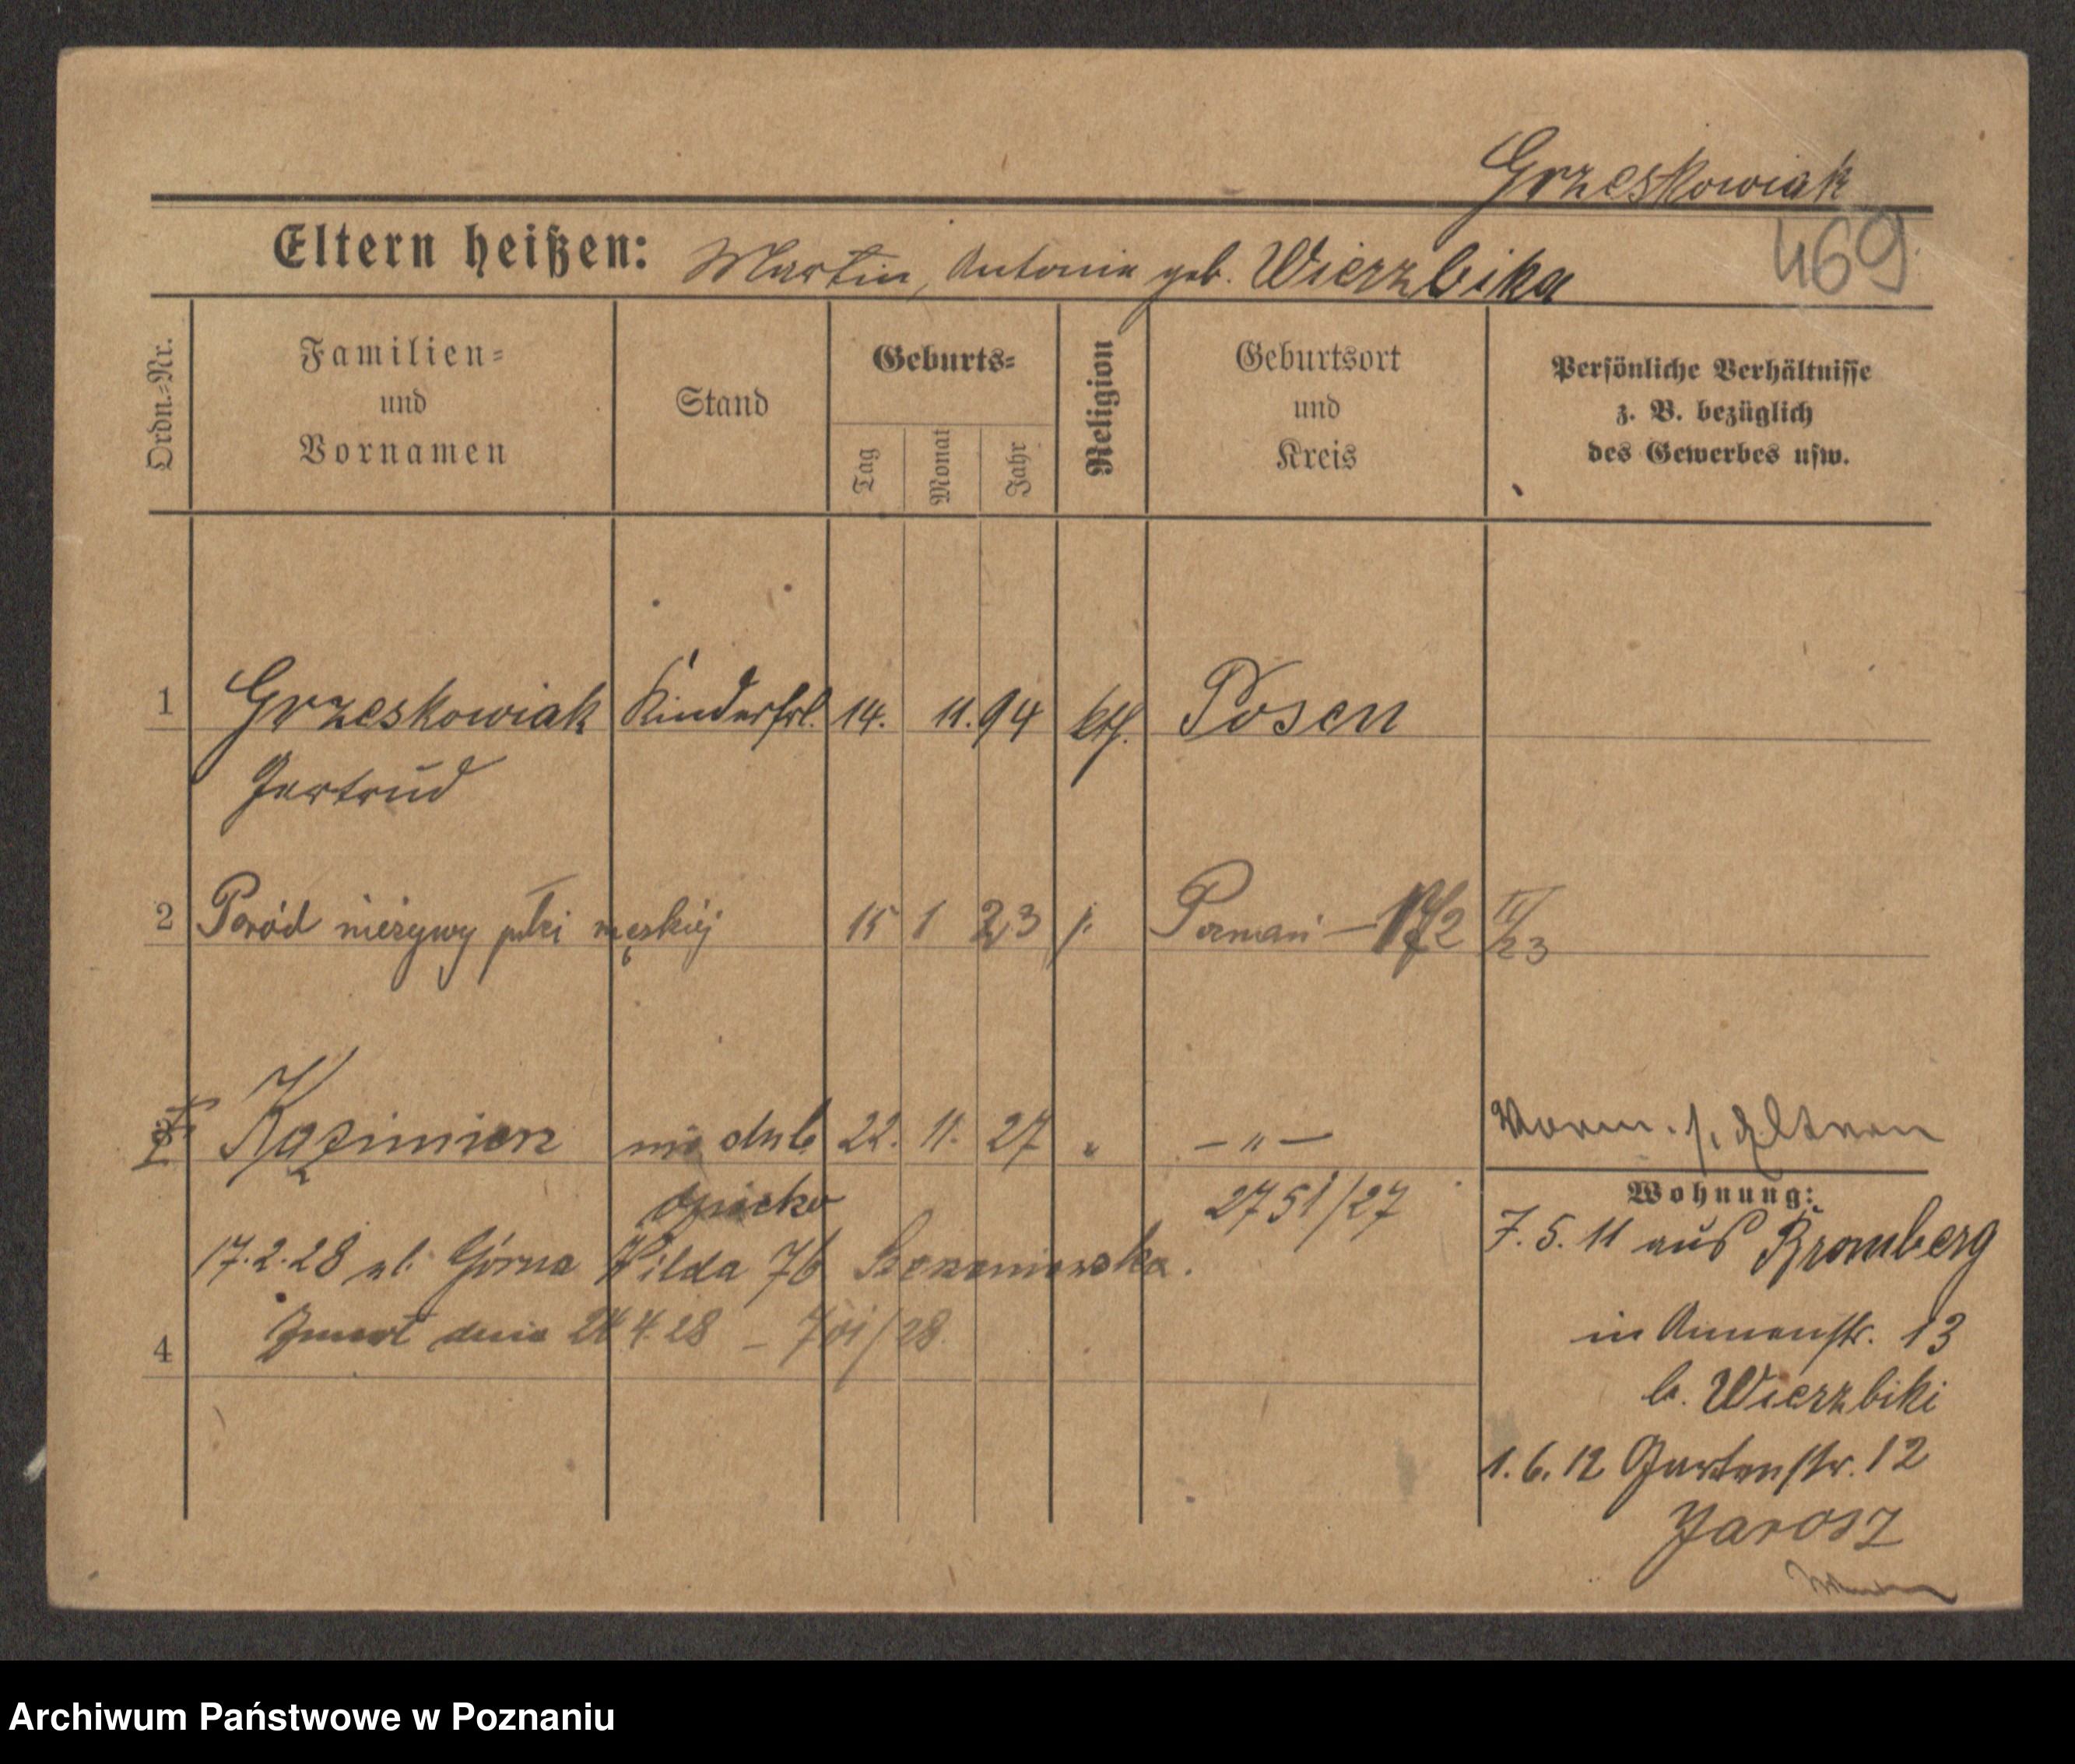 Grzeskowiak
469
Eltern heißen: Martin, Antonie geb. Wierzbika
Ordn.=Nr.
Familien=
und
Vornamen
Stand
Geburts=
Tag
Monat
Jahr
Religion
Geburtsort
und
Kreis
Persönliche Verhältnisse
z. B. bezüglich
des Gewerbes usw.
1 Grzeskowiak Kinderfrl. 14. 11. 94 kth. Posen
Gertrud
2 Poród nieżywy płci męskiej 15 1 23 Poznań - 172 IV/23
Kazimierz nieślub 22. 11. 27 " - " -
2751/27
17.2.28 ul. Górna Wilda 76
Zmarł dnia 24 4. 28 - 701/28
4
Vorm. s. Eltern
Wohnung:
7. 5. 11 aus Bromberg
in Annenstr. 13
b. Wierzbiki
1. 6. 12 Gartenstr. 12
Jarosz
Archiwum Państwowe w Poznaniu